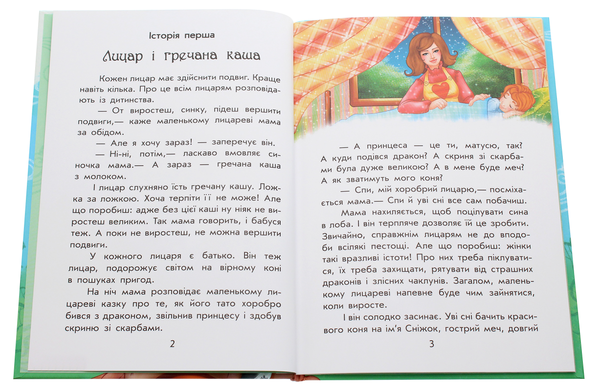 Історія перша
Лицар і гречана каша
Кожен лицар має здійснити подвиг. Краще
навіть кілька. Про це всім лицарям розповіда-
ють із дитинства.
— От виростеш, синку, підеш вершити
подвиги,— каже маленькому лицареві мама
за обідом.
— Але я хочу зараз! — заперечує він.
— Ні-ні, потім,— ласкаво вмовляє си-
ночка мама.— А зараз — гречана каша
з молоком.
І лицар слухняно їсть гречану кашу. Лож-
ка за ложкою. Хоча терпіти її не може! Але
що поробиш: адже без цієї каші ну ніяк не
виростеш великим. Так мама говорить, і бабуся
теж. А поки не виростеш, не можна вершити
подвиги.
У кожного лицаря є батько. Він теж
лицар, подорожує світом на вірному коні
в пошуках пригод.
На ніч мама розповідає маленькому ли-
цареві казку про те, як його тато хоробро
бився з драконом, звільнив принцесу і здобув
скриню зі скарбами.
2
— А принцеса — це ти, матусю, так?
А куди подівся дракон? А скриня зі скарба-
ми була дуже великою? А в мене буде меч?
А як зватимуть мого коня?
— Спи, мій хоробрий лицарю,— посміха-
ється мама.— Спи й уві сні все сам побачиш.
Мама нахиляється, щоб поцілувати сина
в лоба. І він терпляче дозволяє їй це зробити.
Звичайно, справжнім лицарям не до вподо-
би всілякі пестощі. Але що поробиш: жінки
такі вразливі істоти! Про них треба піклувати-
ся, їх треба захищати, рятувати від страшних
драконів і злісних чаклунів. Загалом, малень-
кому лицареві напевне буде чим зайнятися,
коли виросте.
І він солодко засинає. Уві сні бачить краси-
вого коня на ім'я Сніжок, гострий меч, довгий
3